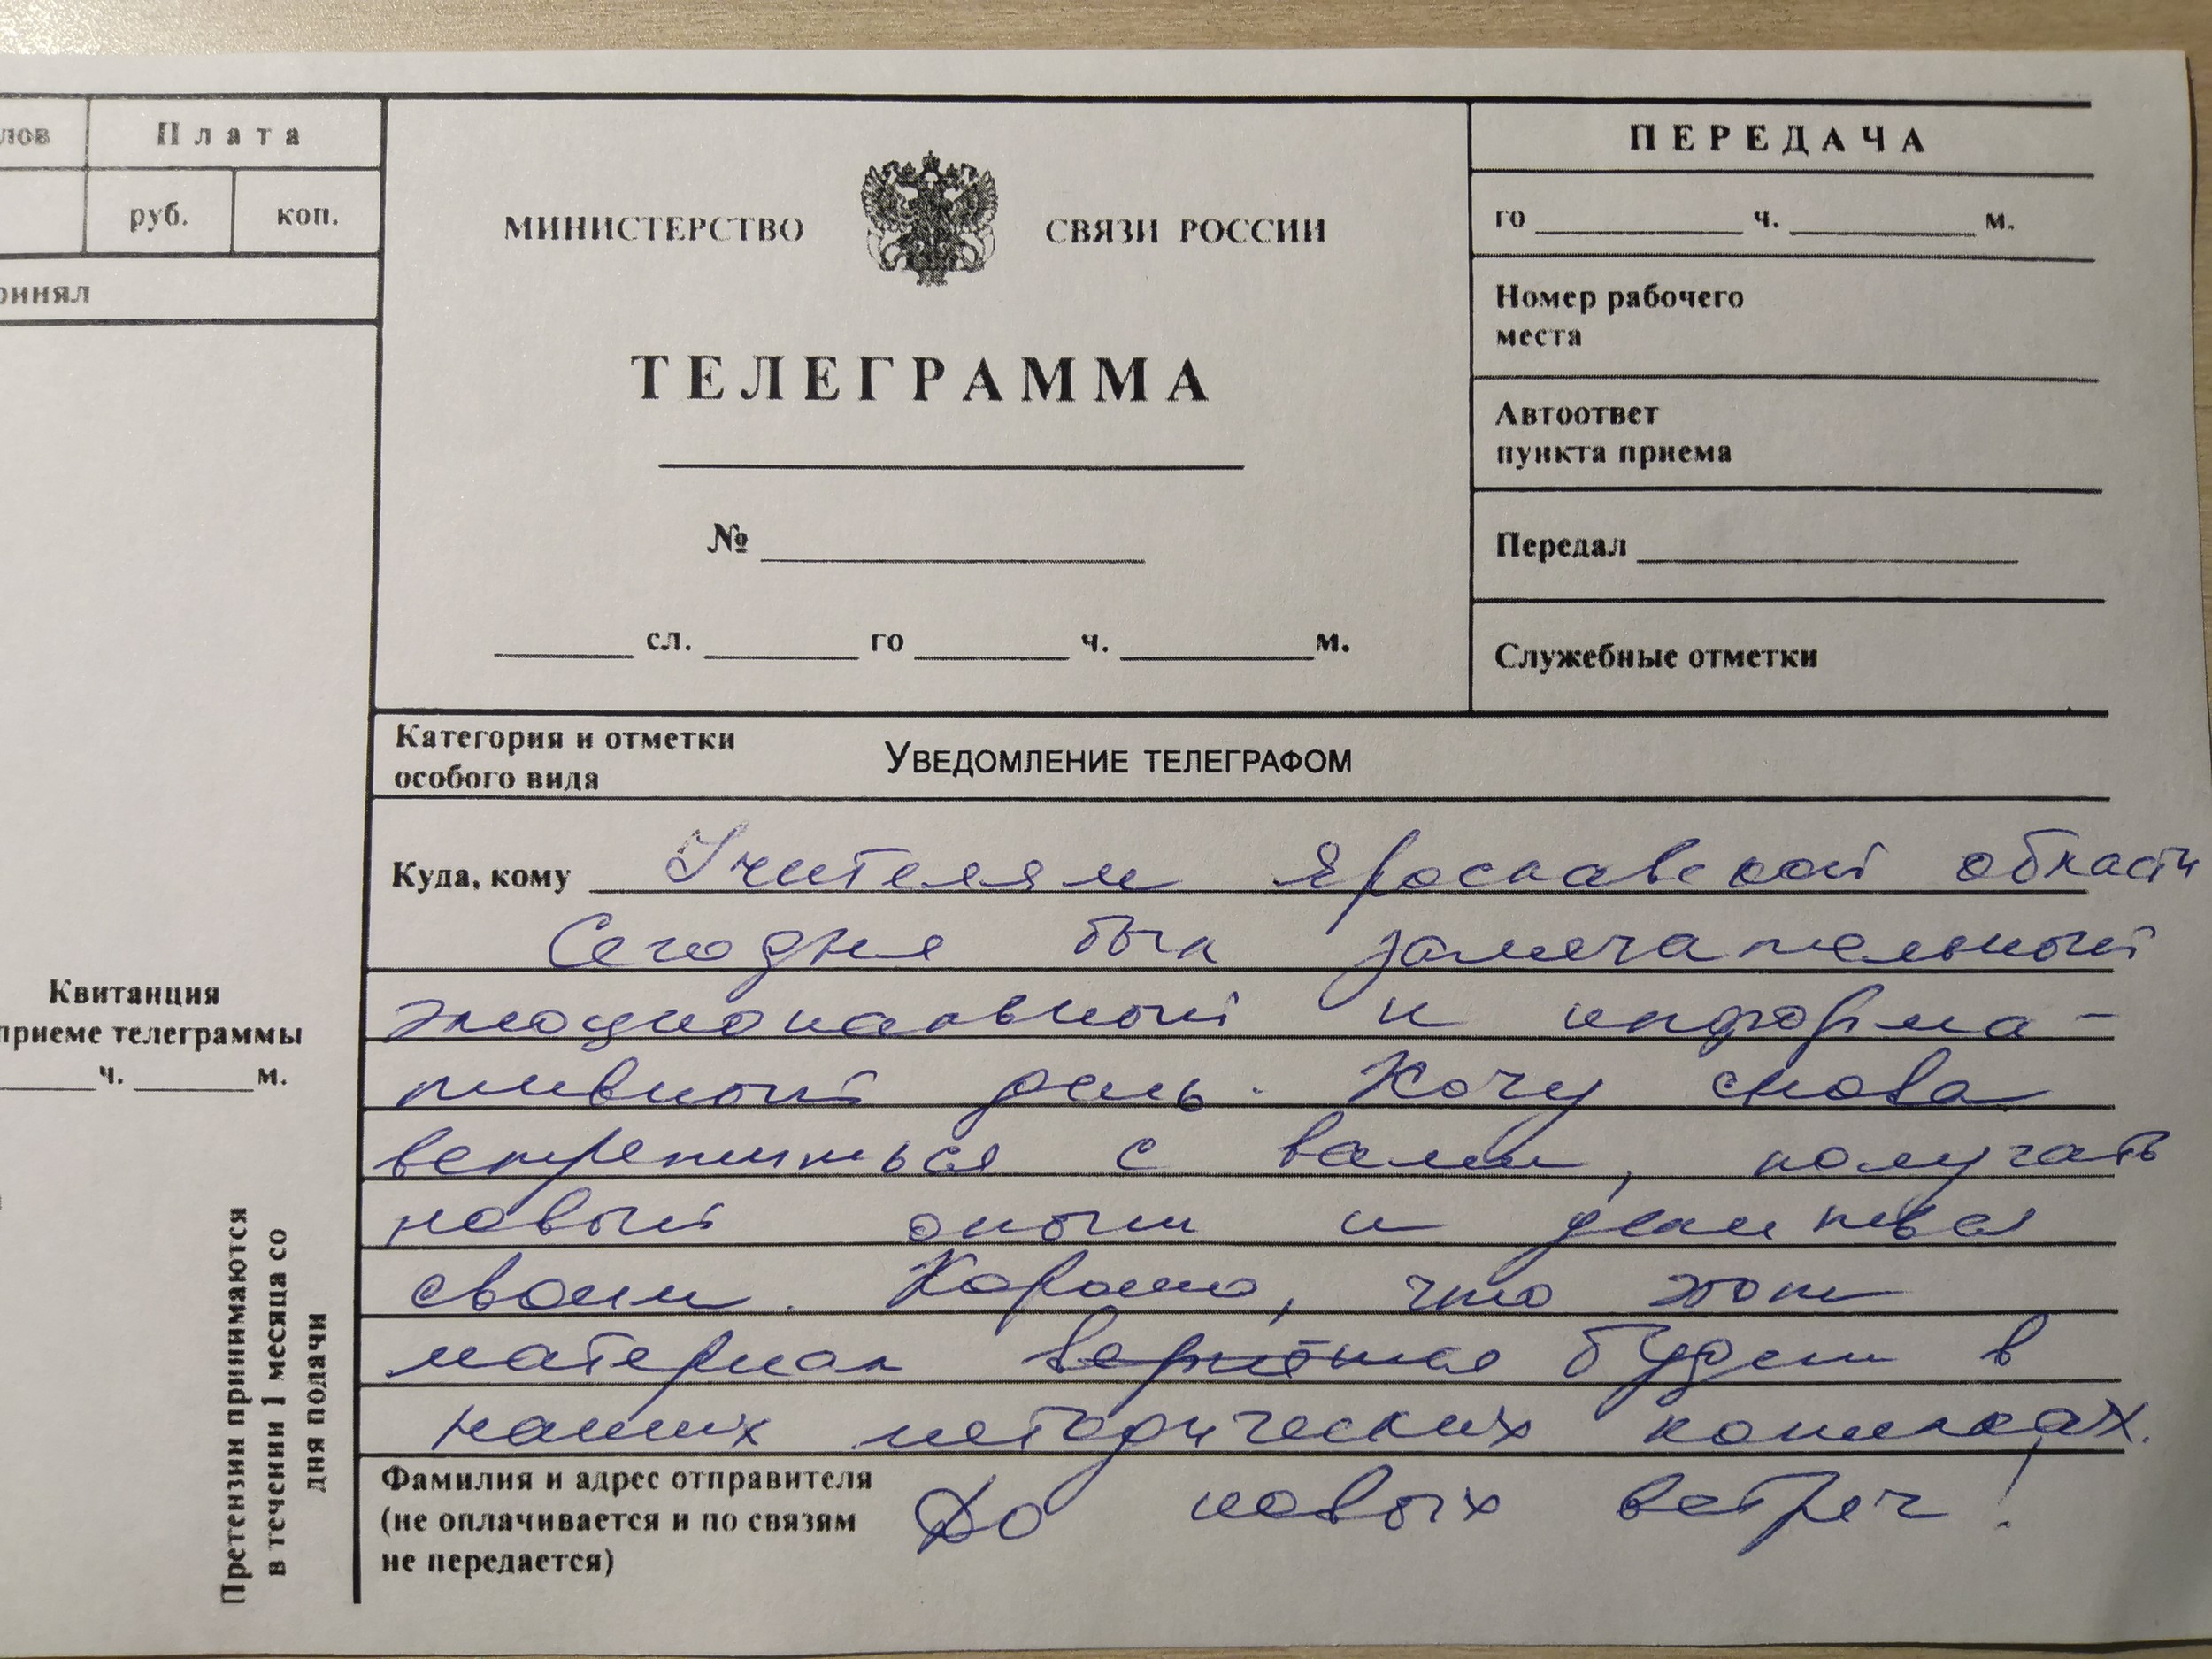 лов Плата
руб. коп.
ринял
МИНИСТЕРСТВО СВЯЗИ РОССИИ
ТЕЛЕГРАММА
№
сл. го ч. м.
ПЕРЕДАЧА
го ч. м.
Номер рабочего
места
Автоответ
пункта приема
Передал
Служебные отметки
Категория и отметки
особого вида
УВЕДОМЛЕНИЕ ТЕЛЕГРАФОМ
Куда, кому Учителям Ярославской области
Сегодня был замечательный
эмоциональный и информа-
тивный день. Хочу снова
встретиться с вами, получать
новый опыт и делиться
своим. Хорошо, что этот
материал вернётся будет в
наших методических копилках.
Фамилия и адрес отправителя
(не оплачивается и по связям
не передается)
До новых встреч!
Квитанция
приеме телеграммы
ч. м.
Претензии принимаются
в течении 1 месяца со
дня подачи